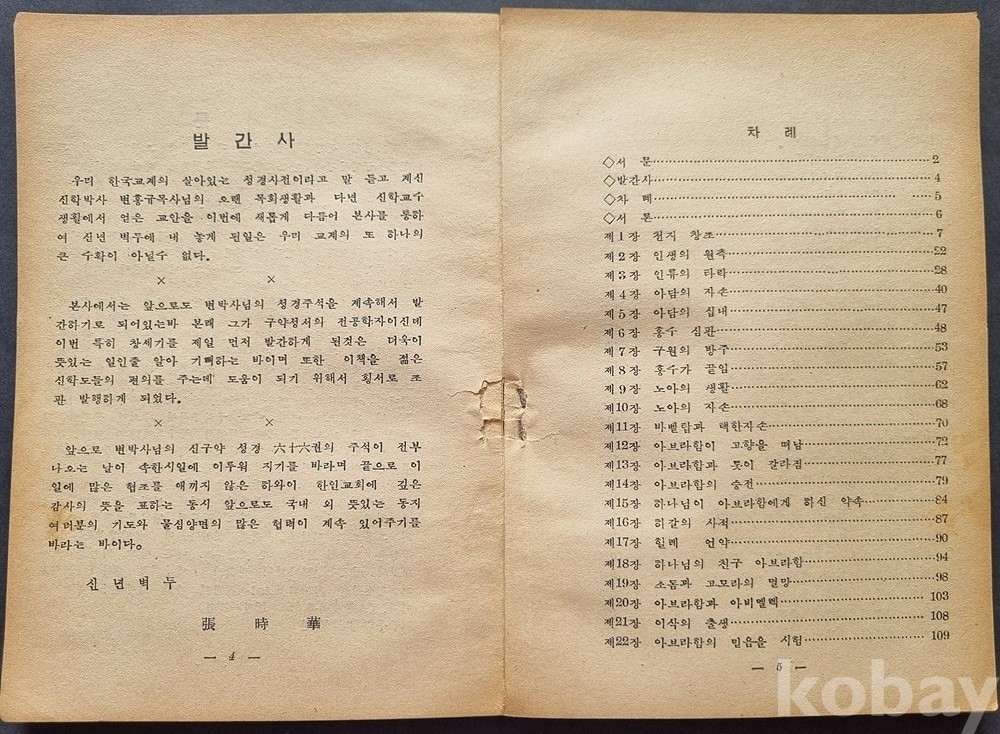 발 간 사
우리 한국교계의 살아있는 성경사전이라고 말 듣고 계신
신학박사 변홍규목사님의 오랜 목회생활과 다년 신학교수
생활에서 얻은 교안을 이번에 새롭게 다듬어 본사를 통하
여 신년 벽두에 내 놓게 된일은 우리 교계의 또 하나의
큰 수확이 아닐수 없다。
× ×
본사에서는 앞으로도 변박사님의 성경주석을 계속해서 발
간하기로 되어있는바 본래 그가 구약성서의 전공학자이신데
이번 특히 창세기를 제일 먼저 발간하게 된것은 더욱이
뜻있는 일인줄 알아 기뻐하는 바이며 또한 이책을 젊은
신학도들의 편의를 주는데 도움이 되기 위해서 횡서로 조
판 발행하게 되었다。
× ×
앞으로 변박사님의 신구약 성경 六十六권의 주석이 전부
나오는 날이 속한시일에 이루워 지기를 바라며 끝으로 이
일에 많은 협조를 애끼지 않은 하와이 한인교회에 깊은
감사의 뜻을 표하는 동시 앞으로도 국내 외 뜻있는 동지
여러분의 기도와 물심양면의 많은 협력이 계속 있어주기를
바라는 바이다。
신년벽두
張 時 華
— 4 —
차 례
◇서 문 2
◇발간사 4
◇차 례 5
◇서 론 6
제1장 천지 창조 7
제2장 인생의 원측 22
제3장 인류의 타락 28
제4장 아담의 자손 40
제5장 아담의 십대 47
제6장 홍수 심판 48
제7장 구원의 방주 53
제8장 홍수가 끝임 57
제9장 노아의 생활 62
제10장 노아의 자손 68
제11장 바벨탑과 택한자손 70
제12장 아브라함이 고향을 떠남 72
제13장 아브라함과 롯이 갈라짐 77
제14장 아브라함의 승전 79
제15장 하나님이 아브라함에게 하신 약속 84
제16장 하갈의 사적 87
제17장 할례 언약 90
제18장 하나님의 친구 아브라함 94
제19장 소돔과 고모라의 멸망 98
제20장 아브라함과 아비멜렉 103
제21장 이삭의 출생 108
제22장 아브라함의 믿음을 시험 109
— 5 —
kobay